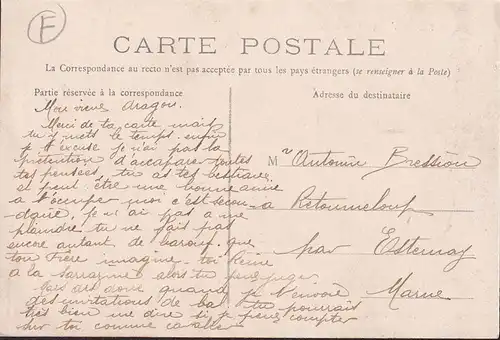 F
CARTE POSTALE
La Correspondance au recto n'est pas acceptée par tous les pays étrangers (se renseigner à la Poste)
Partie réservée à la correspondance
Adresse du destinataire
Mon vieux aragon.
Merci de ta carte mais
tu y mets le temps. enfin
je t'excuse je n'ai pas la
prétention d'accaparer toutes
tes pensées, tu as tes bestiaux
et peut être une bonne amie
a t'occuper moi c'est secon-
daire, je n'ai pas a me
plaindre tu ne fais pas
encore autant de barouf que
ton frère imagine toi Reine
a la alors tu peux juger
dis donc quand je t'envoie
des invitations de bal tu pourrais
très bien me dire si je peux compter
sur toi comme cavalier
Mr Antonin
a Retourneloup
par Esternay
Marne